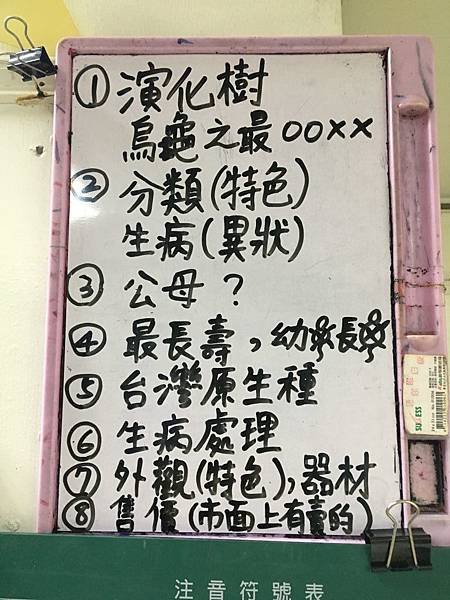 ① 演化樹
烏龜之最 ○○××
② 分類(特色)
生病(異狀)
③ 公母?
④ 最長壽,幼 長
⑤ 台灣原生種
⑥ 生病處理
⑦ 外觀(特色),器材
⑧ 售價(市面上有賣的)
SUCCESS
注音符號表